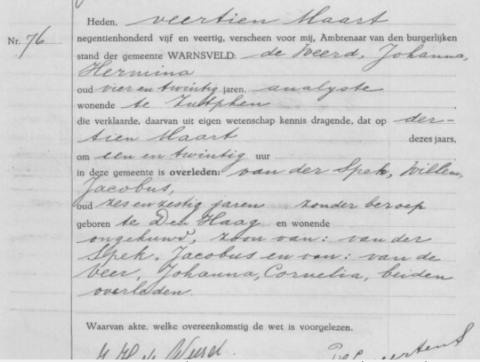 Heden, veertien Maart
Nr. 76 negentienhonderd vijf en veertig, verscheen voor mij, Ambtenaar van den burgerlijken
stand der gemeente WARNSVELD: de Weerd, Johanna,
Hermina
oud vier en twintig jaren, analyste
wonende te Zutphen
die verklaarde, daarvan uit eigen wetenschap kennis dragende, dat op der-
tien Maart dezes jaars,
om een en twintig uur
in deze gemeente is overleden: van der Spek, Willem,
Jacobus,
oud zes en zestig jaren zonder beroep
geboren te Den Haag en wonende
ongehuwd, zoon van: van der
Spek, Jacobus en van: van de
Veer, Johanna, Cornelia, beiden
overleden.
Waarvan akte, welke overeenkomstig de wet is voorgelezen.